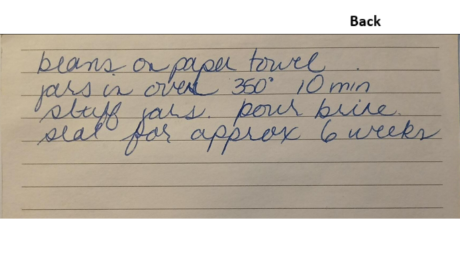 Back
beans on paper towel.
jars in oven 350° 10 min
stuff jars. pour brine.
seal for approx 6 weeks